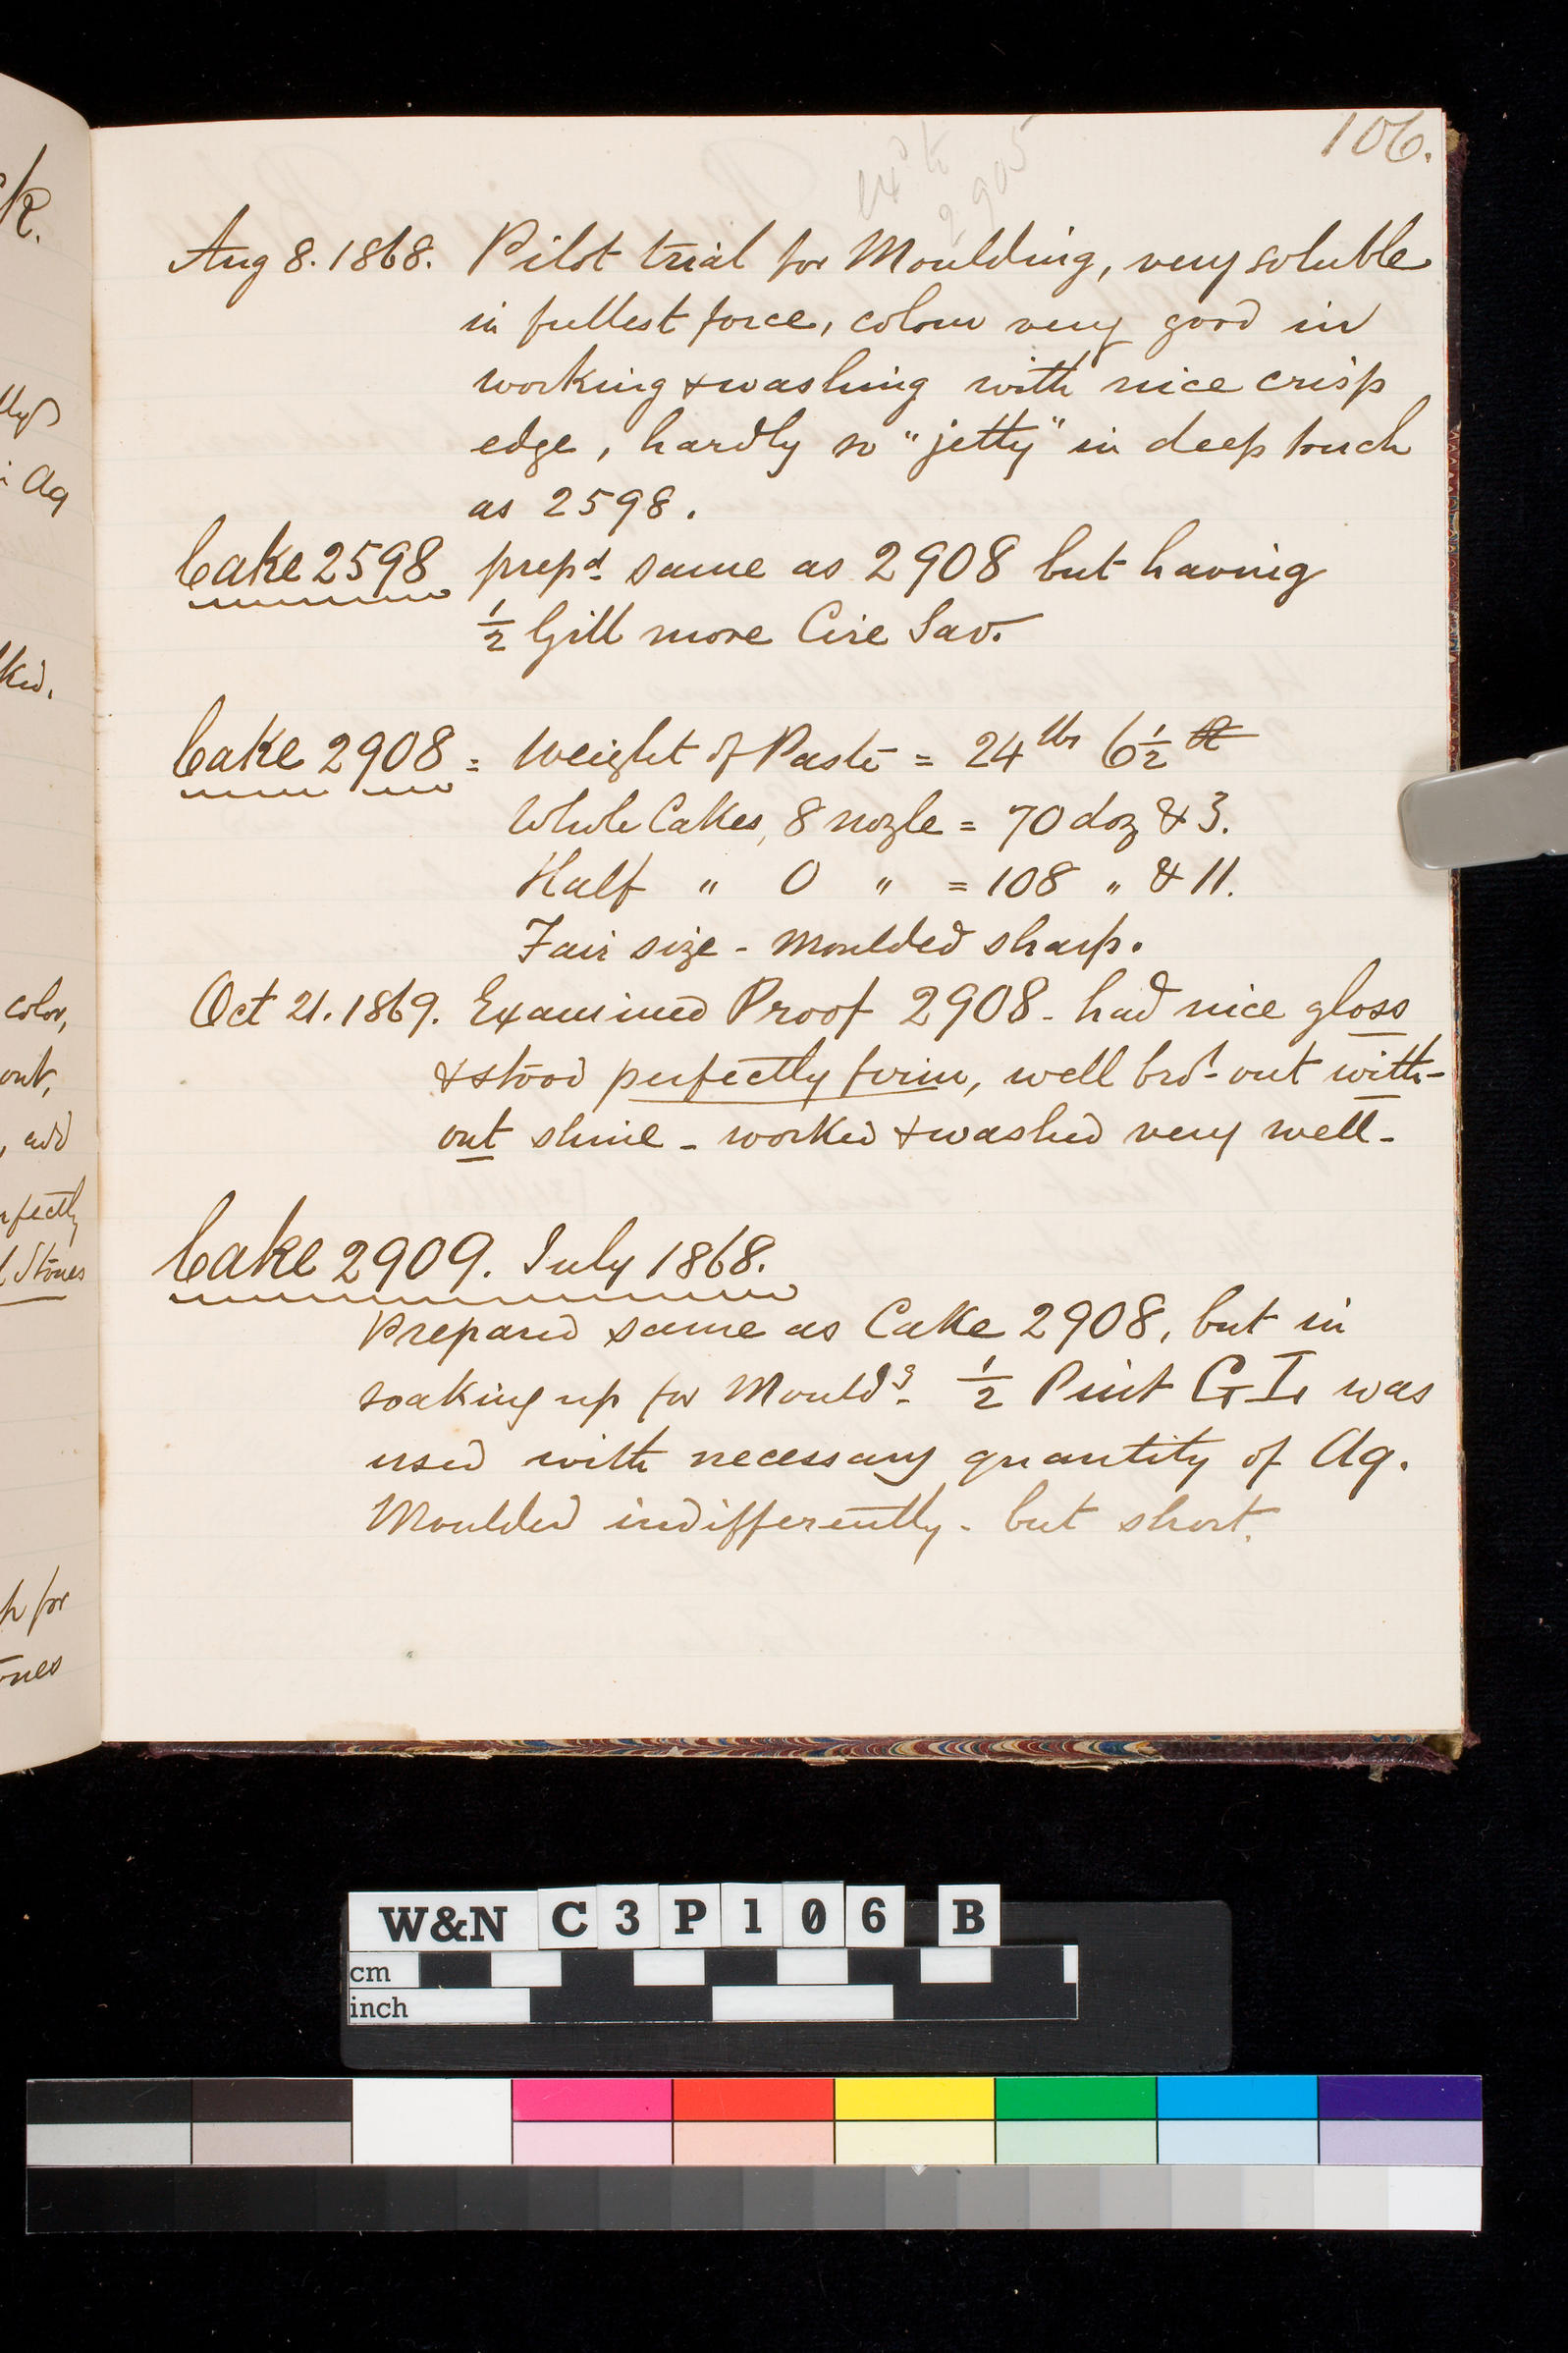 106.
2905
Aug 8. 1868. Pilot trial for Moulding, very soluble
in fullest force, colour very good in
working & washing with nice crisp
edge, hardly so "jetty" in deep touch
as 2598.
Cake 2598 prepd. same as 2908 but having
1/2 Gill more Cire Sav.
Cake 2908 = Weight of Paste = 24 lbs 6 1/2
Whole Cakes, 8 nozle = 70 doz & 3.
Half " 0 " = 108 " & 11.
Fair size - Moulded sharp.
Oct 21. 1869. Examined Proof 2908 - had nice gloss
& stood perfectly firm, well brot. out with-
out shine - worked & washed very well -
Cake 2909. July 1868.
Prepared same as Cake 2908, but in
soaking up for Mouldg. 1/2 Pint was
used with necessary quantity of Aq.
Moulded indifferently - but short.
k.
Aq
color,
out,
, add
Stones
for
W&N C3P106 B
cm
inch